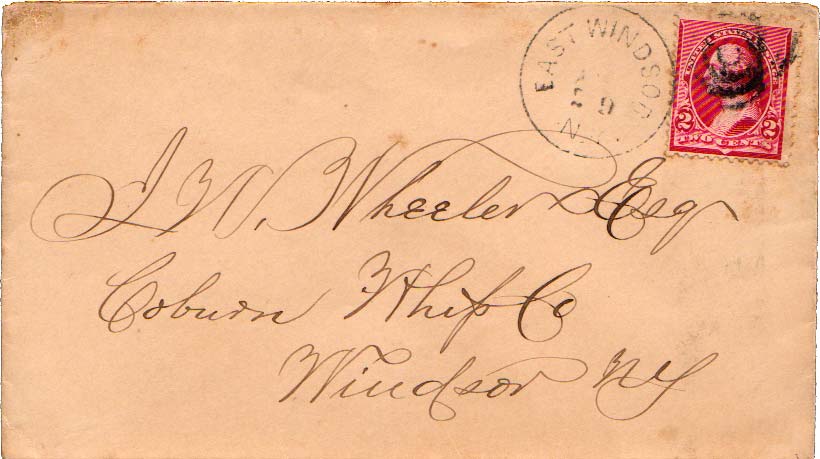 EAST WINDSOR
29
N.Y.
UNITED STATES POSTAGE
2 2
TWO CENTS
J. W. Wheeler Esq
Coburn Whip Co
Windsor NY